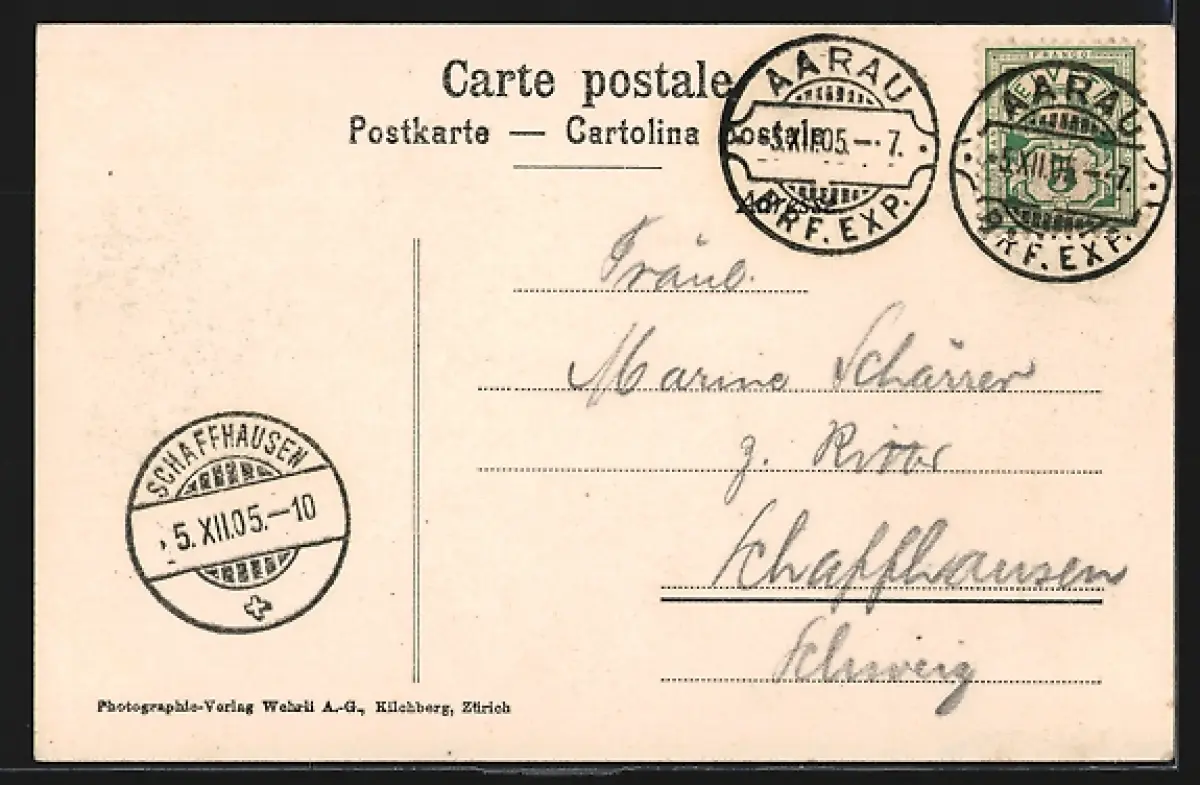 Carte postale
Postkarte — Cartolina postale
AARAU
5.XII.05.–·7.
BRF. EXP.
FRANCO
HELVETIA
AARAU
5.XII.05.–·7.
BRF. EXP.
Adresse
Fräul.
Marine Schärrer
z.
Schaffhausen
Schweiz
SCHAFFHAUSEN
5.XII.05.–10
Photographie-Verlag Wehrli A.-G., Kilchberg, Zürich